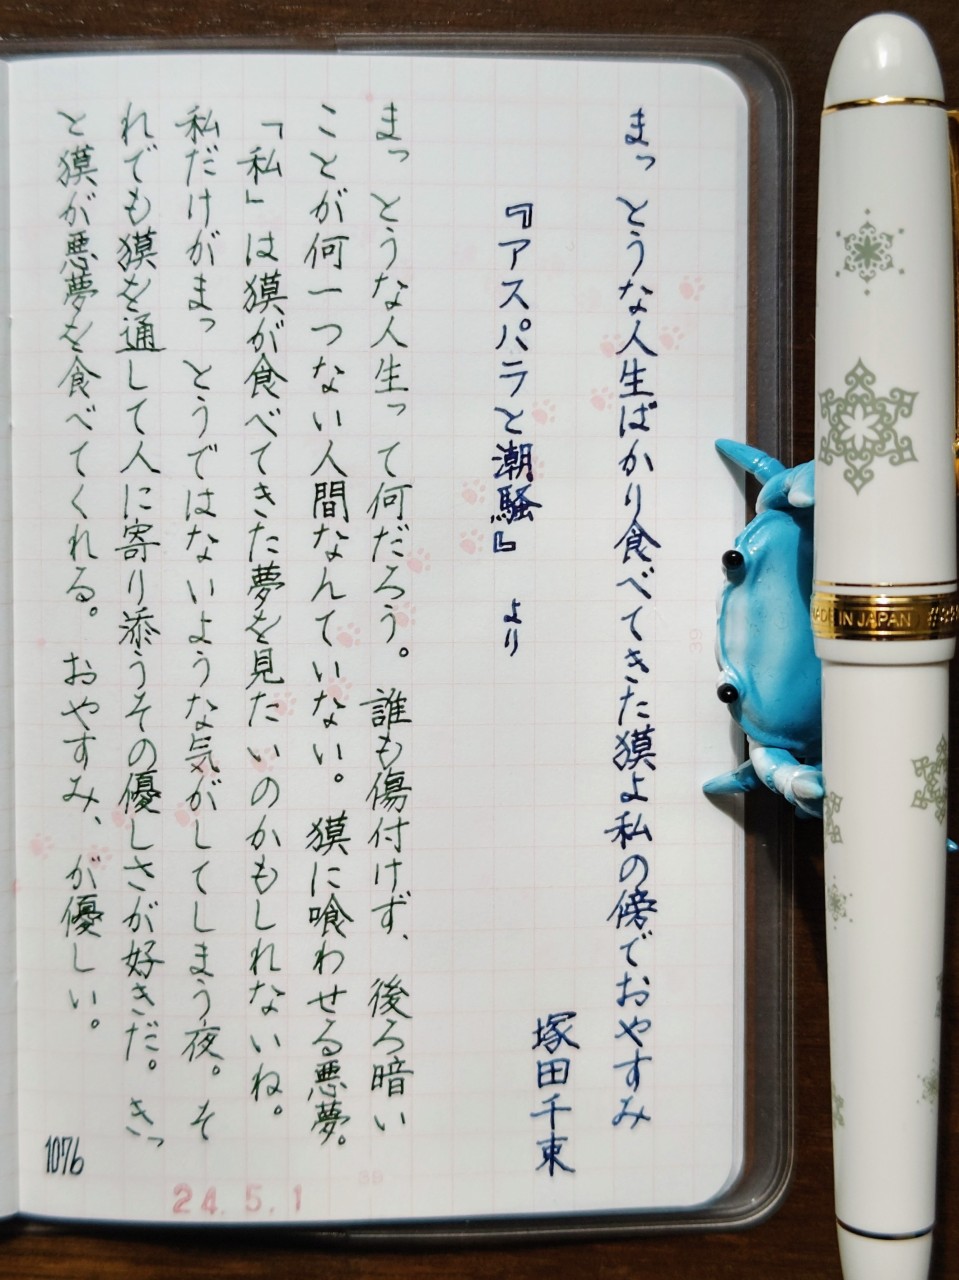 まっとうな人生ばかり食べてきた獏よ私の傍でおやすみ
塚田千束
『アスパラと潮騒』 より
まっとうな人生って何だろう。誰も傷付けず、後ろ暗い
ことが何一つない人間なんていない。獏に喰わせる悪夢。
「私」は獏が食べてきた夢を見たいのかもしれないね。
私だけがまっとうではないような気がしてしまう夜。そ
れでも獏を通して人に寄り添うその優しさが好きだ。きっ
と獏が悪夢を食べてくれる。おやすみ、が優しい。
1076
24.5.1
39
39
MADE IN JAPAN